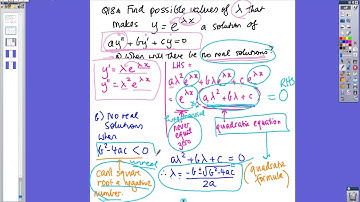 Q18a Find possible values of λ that
makes y = e^λx a solution of
ay" + by' + cy = 0
b) When will there be no real solutions
y' = λe^λx
y" = λ²e^λx
LHS =
aλ²e^λx + bλe^λx + ce^λx
= e^λx (aλ² + bλ + c) = 0
RHS
never
equal
zero
quadratic equation
b) No real
solutions
when
b² - 4ac < 0
unreal
can't square
root a negative
number.
aλ² + bλ + c = 0
∴ λ = -b ± √b² - 4ac
2a
(quadratic
formula)